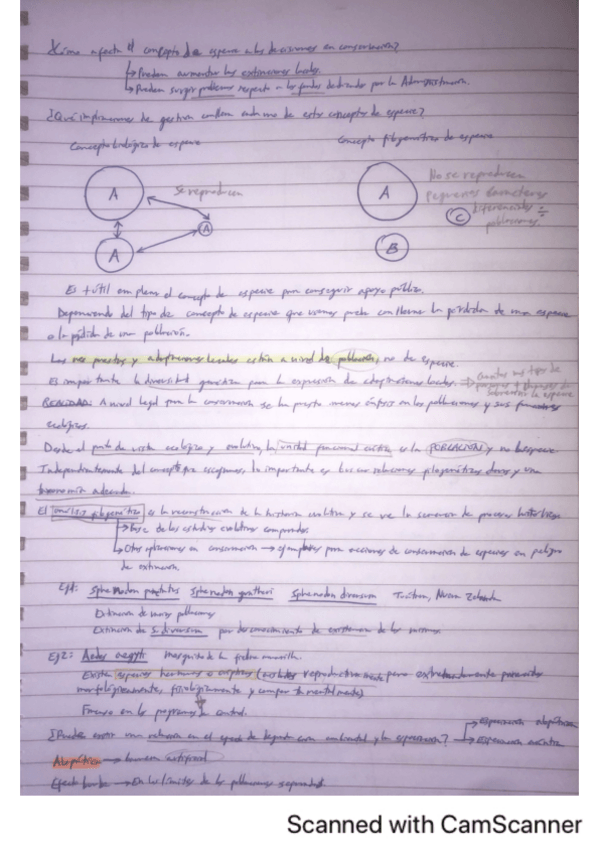 ¿Cómo afecta el concepto de especie a las decisiones en conservación?
↳ Pueden aumentar las extinciones locales.
↳ Pueden surgir problemas respecto a los fondos destinados por la Administración.
¿Qué implicaciones de gestión conllevan cada uno de estos conceptos de especie?
Concepto biológico de especie
Concepto filogenético de especie
A
Se reproducen
A
A
A
No se reproducen
Pequeños caracteres
diferenciales ÷
poblaciones.
C
B
Es + útil emplear el concepto de especie para conseguir apoyo público.
Dependiendo del tipo de concepto de especie que usemos puede conllevar la pérdida de una especie
o la pérdida de una población.
Las respuestas y adaptaciones locales están a nivel de población, no de especie.
Es importante la diversidad genética para la expresión de adaptaciones locales. → Cuantos más tipo de
la especie
REALIDAD: A nivel legal para la conservación se ha puesto menos énfasis en las poblaciones y sus funciones
ecológicas.
Desde el punto de vista ecológico y evolutivo, la unidad funcional crítica es la POBLACIÓN y no la especie
Independientemente del concepto que escojamos, lo importante es buscar relaciones filogenéticas claras y una
taxonomía adecuada.
El análisis filogenético es la reconstrucción de la historia evolutiva y se ve la secuencia de procesos
↳ base de los estudios evolutivos comparados.
↳ Otras aplicaciones en conservación → ejemplos para acciones de conservación de especies en peligro
de extinción.
Ej1: Sphenodon punctatus Sphenodon guntheri Sphenodon diversum Tuátara, Nueva Zelanda
Extinción de varias poblaciones
Extinción de S. diversum por desconocimiento de existencia de las mismas.
Ej2: Aedes aegypti mosquito de la fiebre amarilla.
Existen especies hermanas o crípticas (aisladas reproductivamente pero extremadamente parecidas
morfológicamente, fisiológicamente y comportamentalmente)
Fracaso en los programas de control.
¿Puede existir una relación en el efecto de degradación ambiental y la especiación? → especiación alopátrica
→ especiación
Alopátrica → barrera
Efecto borde → En los límites de las poblaciones separadas.
Scanned with CamScanner